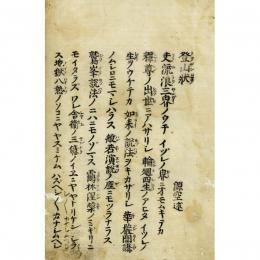 登山状
源空述
夫流浪三界ノウチ イツレノ界ニオモムキテカ
釋尊ノ出世ニアハサリシ 輪廻四生ノアヒタ イツレノ
生ヲウケテカ 如来ノ説法ヲキカサリシ 華嚴開講
ノムシロニモマシハラス 般若演説ノ座ニモツラナラス
鷲峯説法ノニハニモノソマス 霍林涅槃ノミキリニ
モイタラス ワレ舎衛ノ三億ノイエニヤヤトリケン シラ
ス地獄八熱ノソコニヤスミケム ハツヘシ